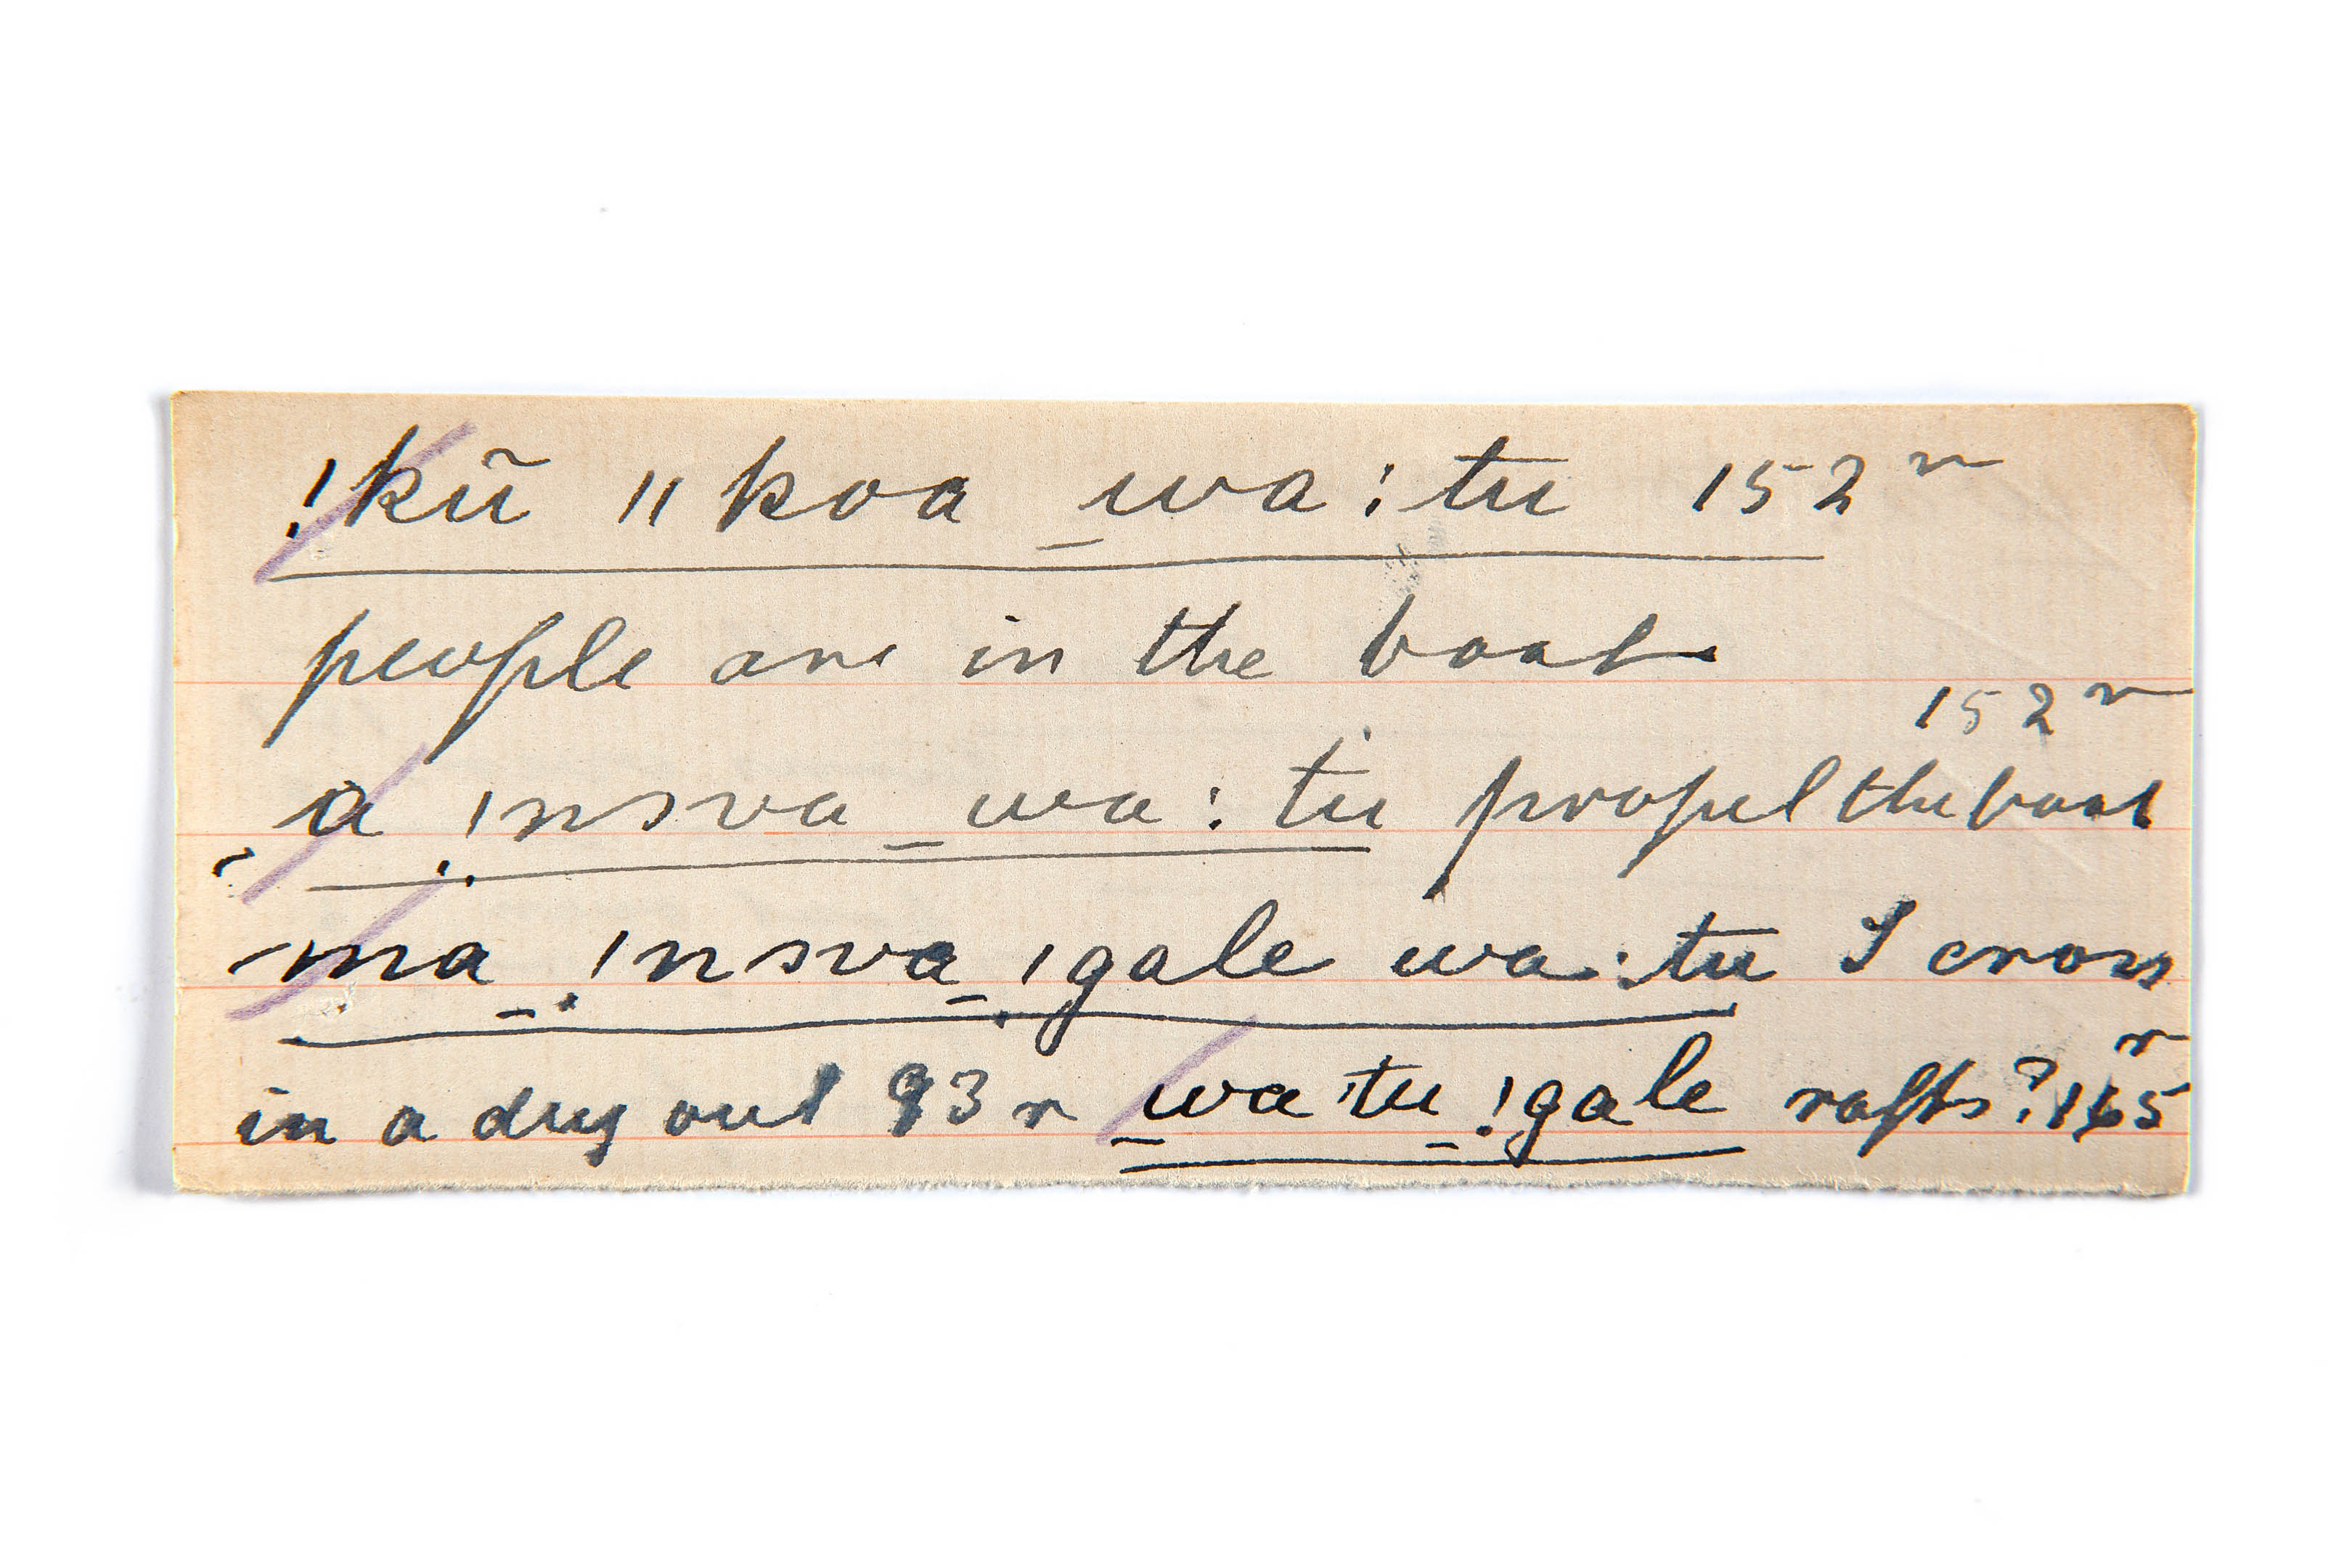 !kũ ǁkoa _wa:tu 152 r
people are in the boat
152 r
a !nsva _wa:tu propel the boat
ma _!nsva _!gale wa:tu I cross
in a dug out 93 r _watu _!gale rafts? 165 r